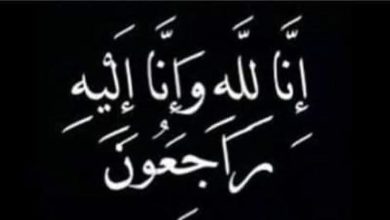 إنَّا لله وَإنَّا إلَيْهِ
رَاجَعُونَ